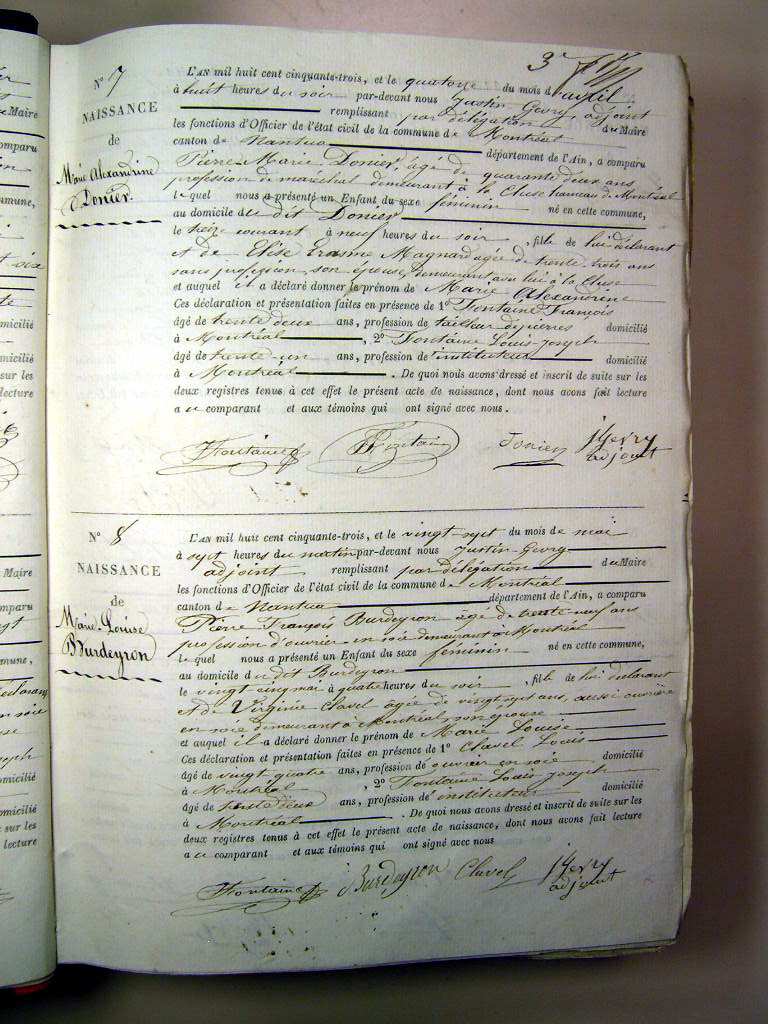 3
N° 7
NAISSANCE
de
Marie Alexandrine
Donier.
L'AN mil huit cent cinquante-trois, et le quatorze du mois d'avril
à huit heures du soir par-devant nous Justin Gevry, adjoint
remplissant par délégation du Maire
les fonctions d'Officier de l'état civil de la commune de Montréal
canton de Nantua département de l'Ain, a comparu
Pierre Marie Donier, âgé de quarante deux ans
profession de maréchal demeurant à la Cluse hameau de Montréal
lequel nous a présenté un Enfant du sexe féminin né en cette commune,
au domicile du dit Donier
le treize courant à neuf heures du soir, fille de lui déclarant
et de Elise Erasme Magnard agée de trente-trois ans
sans profession, son épouse, demeurant avec lui à la Cluse
et auquel il a déclaré donner le prénom de Marie Alexandrine
Ces déclaration et présentation faites en présence de 1° Fontaine François
âgé de trente deux ans, profession de tailleur de pierres domicilié
à Montréal, 2° Fontaine Louis-Joseph
âgé de trente-un ans, profession d'instituteur domicilié
à Montréal. De quoi nous avons dressé et inscrit de suite sur les
deux registres tenus à cet effet le présent acte de naissance, dont nous avons fait lecture
au comparant et aux témoins qui ont signé avec nous.
Fontaine Fontaine Donier J Gevry
adjoint
N° 8
NAISSANCE
de
Marie-Louise
Burdeyron
L'AN mil huit cent cinquante-trois, et le vingt-sept du mois de mai
à sept heures du matin par-devant nous Justin-Gevry
adjoint remplissant par délégation du Maire
les fonctions d'Officier de l'état civil de la commune de Montréal
canton de Nantua département de l'Ain, a comparu
Pierre François Burdeyron âgé de trente neuf ans
profession d'ouvrier-en-soie demeurant à Montréal
lequel nous a présenté un Enfant du sexe féminin né en cette commune,
au domicile du dit Burdeyron
le vingt cinq mai à quatre heures du soir, fille de lui déclarant
et de Virginie Clavel agée de vingt sept ans, aussi ouvrière
en soie demeurant à Montréal, son épouse
et auquel il a déclaré donner le prénom de Marie Louise
Ces déclaration et présentation faites en présence de 1° Clavel Louis
âgé de vingt quatre ans, profession d'ouvrier en soie domicilié
à Montréal, 2° Fontaine Louis Joseph
âgé de trente deux ans, profession d'instituteur domicilié
à Montréal. De quoi nous avons dressé et inscrit de suite sur les
deux registres tenus à cet effet le présent acte de naissance, dont nous avons fait lecture
au comparant et aux témoins qui ont signé avec nous
Fontaine Burdeyron Clavel J Gevry
adjoint